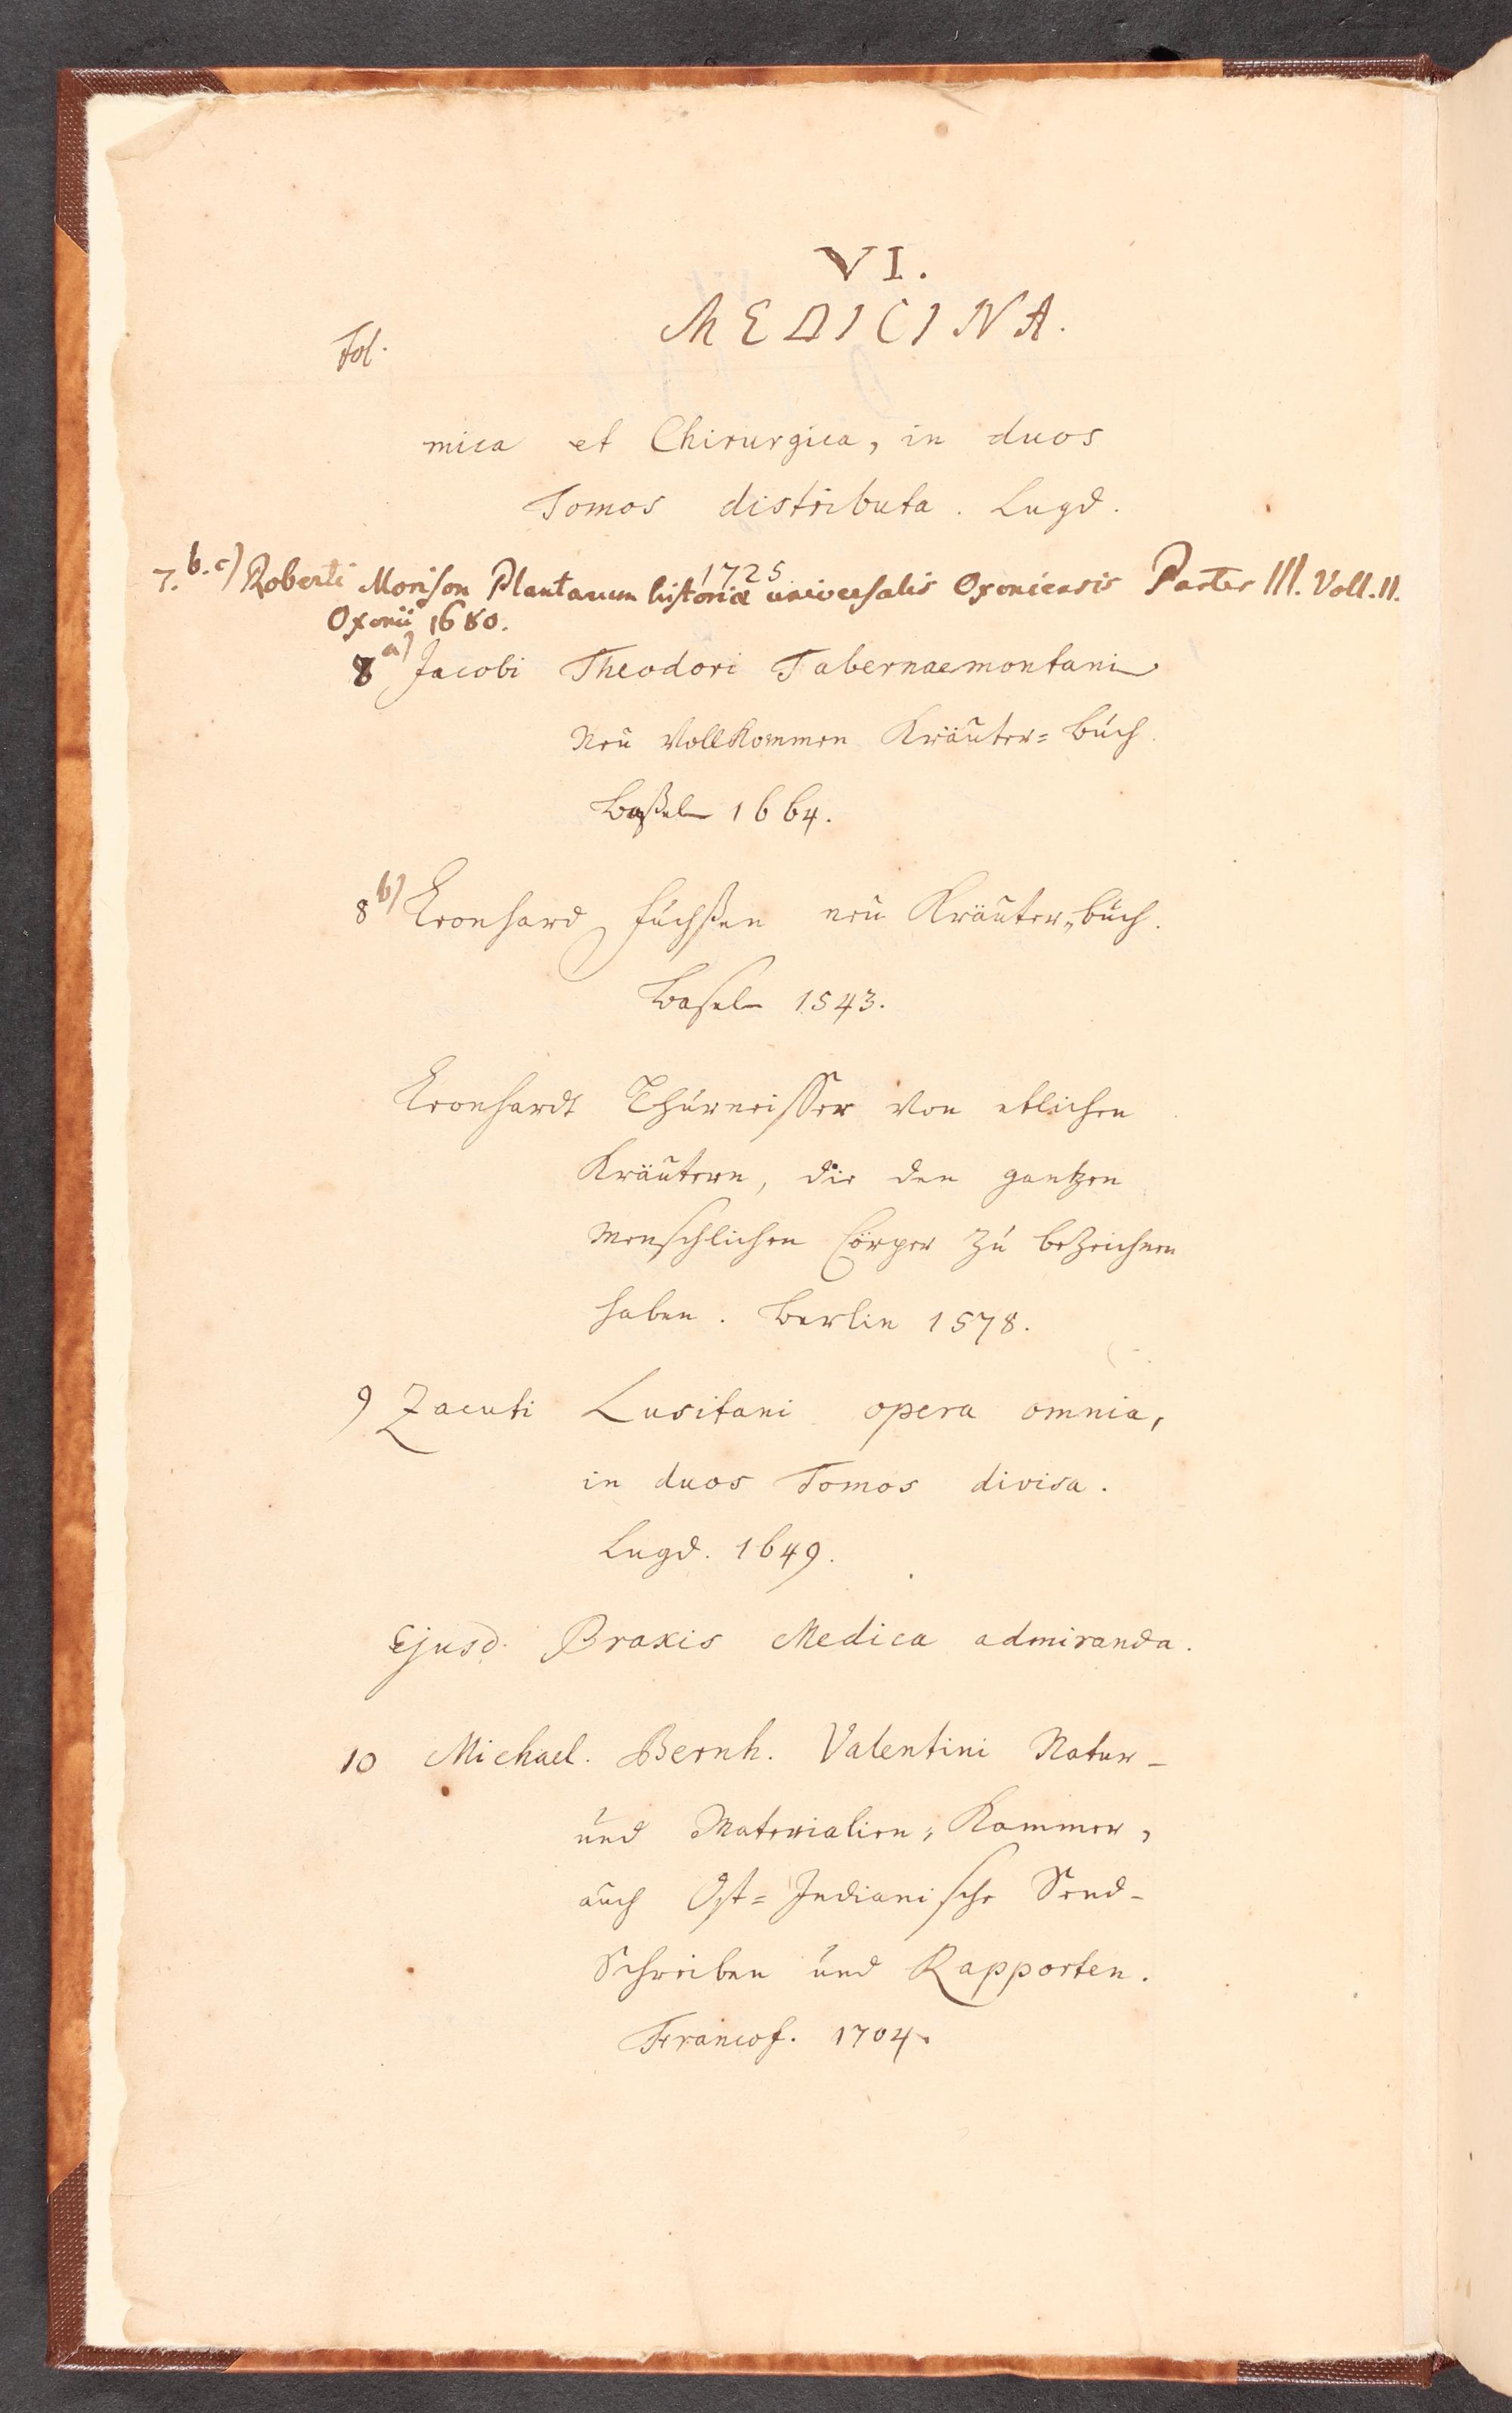 VI.
MEDICINA.
Fol.
mica et Chirurgica, in duos
Tomos distributa. Lugd.
1725
7. b. c) Roberti Morison Plantarum historiæ universalis Oxoniensis Partes III. Voll. II.
Oxonii 1680.
8 a) Jacobi Theodori Tabernaemontani
Neu Vollkommen Kräuter=Buch.
Baßel 1664.
8 b) Leonhard Fuchßen neu Kräuter„buch.
Basel 1543.
Leonhardt Thurneisser von etlichen
Kräutern, die den gantzen
Menschlichen Cörper zu bezeichnen
haben. Berlin 1578.
9 Zacuti Lusitani opera omnia,
in duos Tomos divisa.
Lugd. 1649.
Ejusd. Praxis Medica admiranda.
10 Michael. Bernh. Valentini Natur-
und Materialien„Kammer,
auch Ost=Indianische Send-
Schreiben und Rapporten.
Francof. 1704.